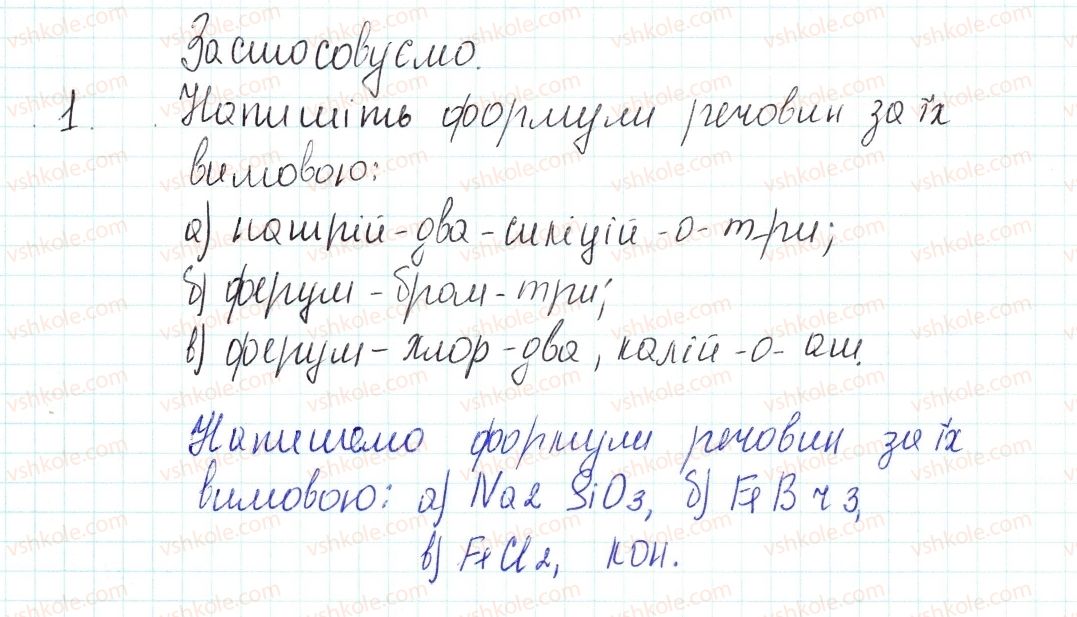 Застосовуємо.
1. Напишіть формули речовин за їх
вимовою:
а) натрій-два-силіцій-о-три;
б) ферум-бром-три;
в) ферум-хлор-два, калій-о-аш.
Напишемо формули речовин за їх
вимовою: а) Na2 SiO3, б) FeBr3,
в) FeCl2, KOH.